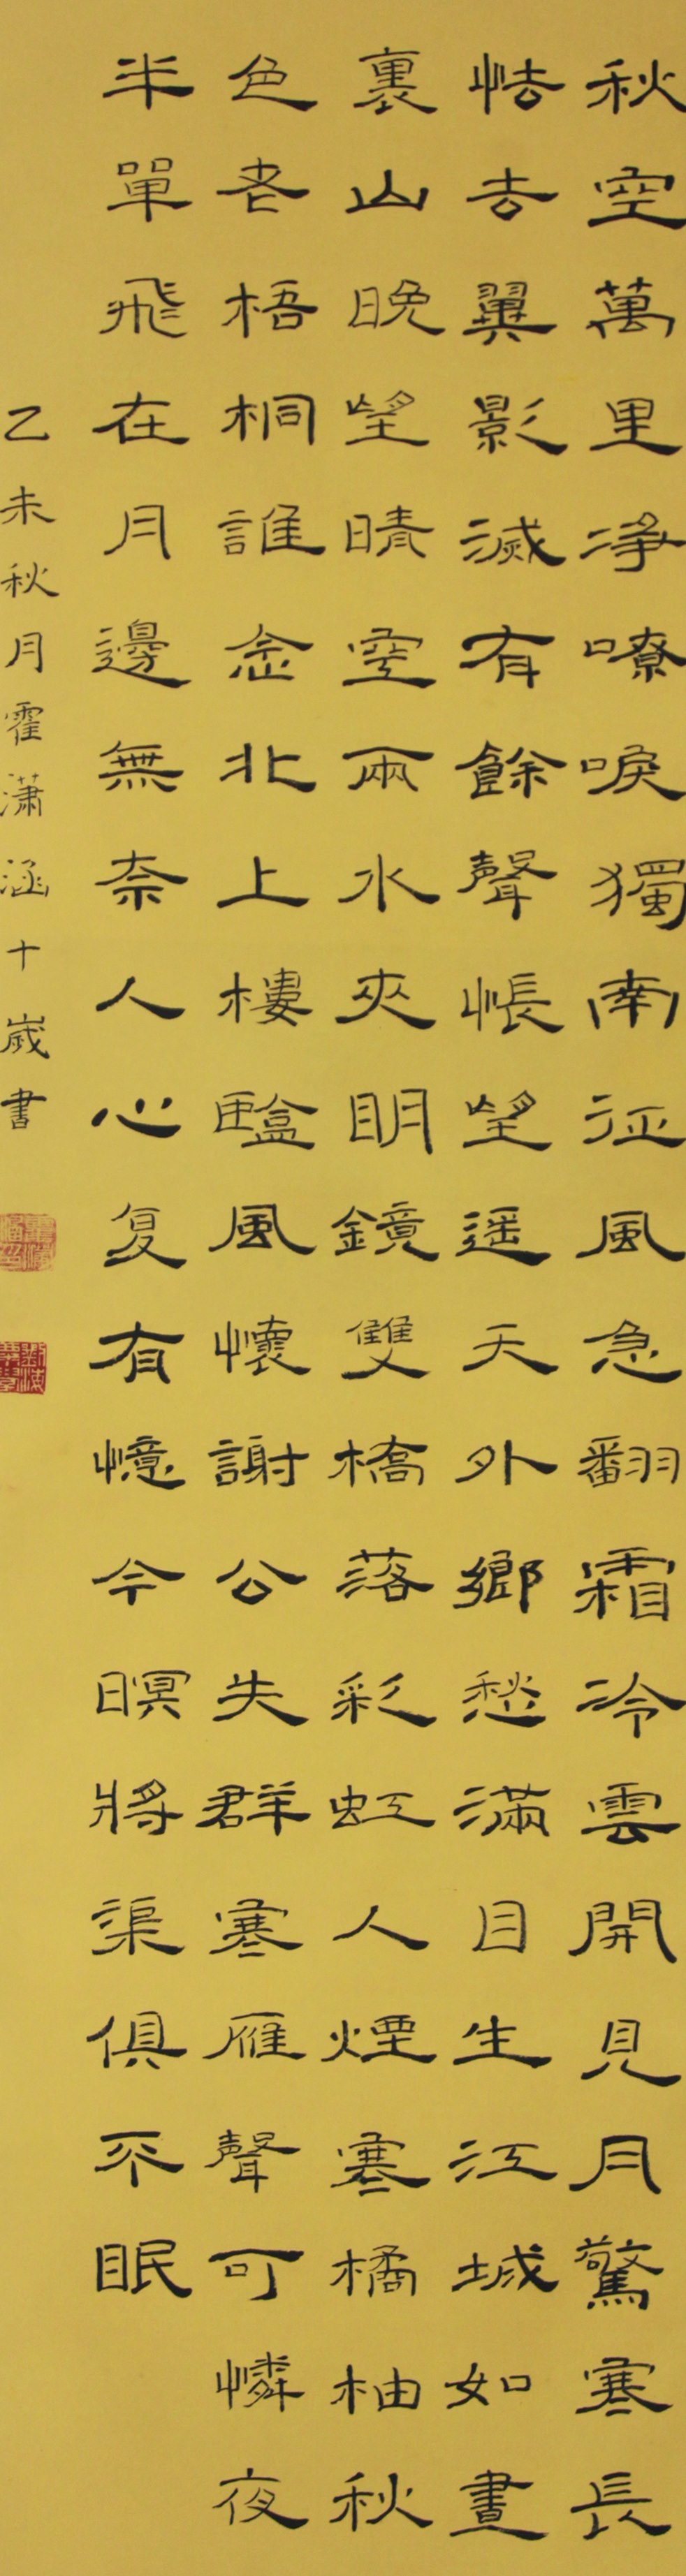 秋空萬里凈嘹唳獨南征風急翻霜冷雲開見月驚寒長
怯去翼影滅有餘聲悵望遥天外鄉愁滿目生江城如畫
裏山晚望晴空兩水夾明鏡雙橋落彩虹人煙寒橘柚秋
色老梧桐誰念北上樓臨風懷謝公失群寒雁聲可憐夜
半單飛在月邊無奈人心复有憶今暝將渠俱不眠
乙未秋月霍瀟涵十歲書